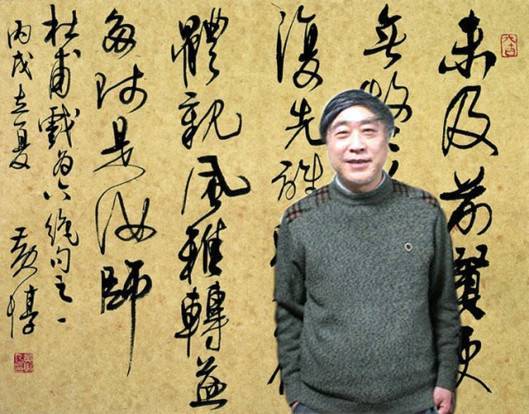 未及前賢更
復先誰
體親風雅轉益
多師是汝師
杜甫戲為六絕句之一
丙戌立夏
黃惇